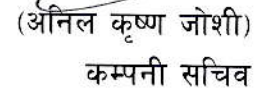 (अनिल कृष्ण जोशी)
कम्पनी सचिव